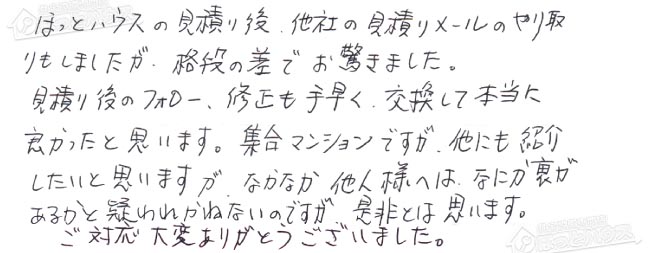 ほっとハウスの見積り後、他社の見積りメールのやり取
りもしましたが、格段の差でお驚きました。
見積り後のフォロー、修正も手早く、交換して本当に
良かったと思います。集合マンションですが、他にも紹介
したいと思いますが、なかなか他人様へは、なにか裏が
あるかと疑われかねないのですが、是非とは思います。
ご対応大変ありがとうございました。